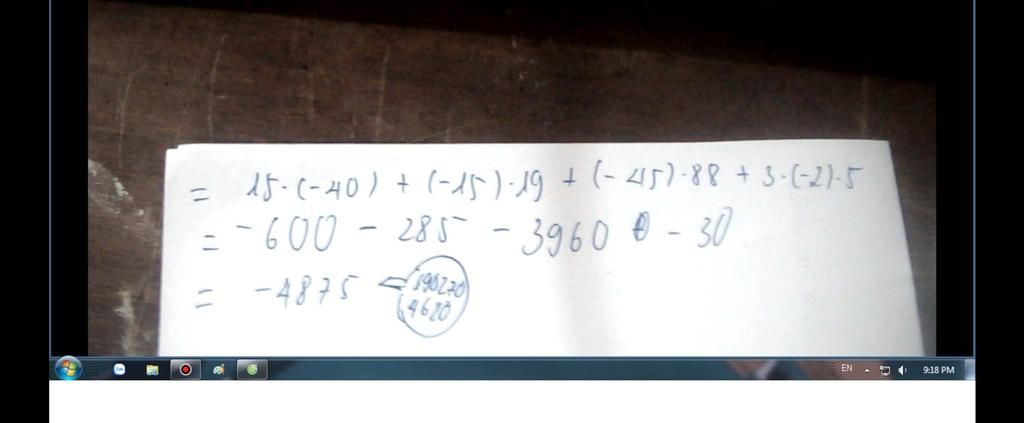 = 15·(-40) + (-15)·19 + (-45)·88 + 3·(-2)·5
= -600 - 285 - 3960 - 30
= -4875
4620
EN 9:18 PM